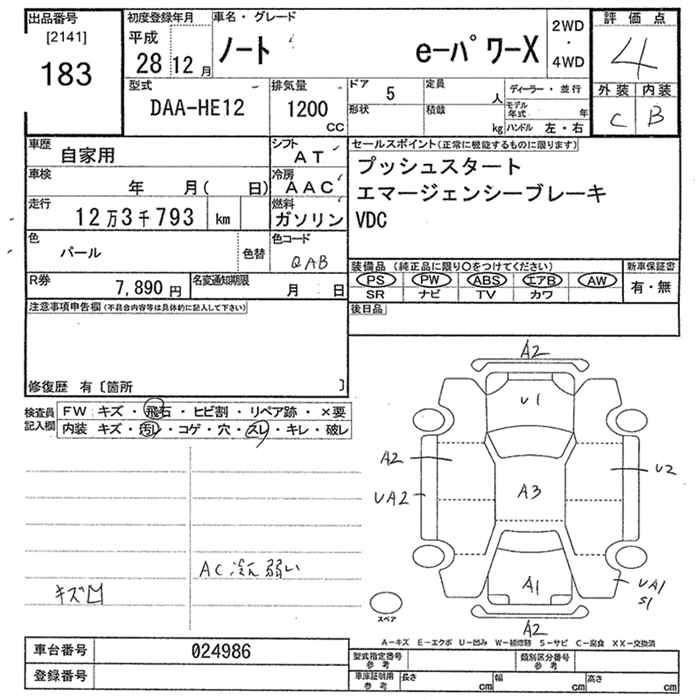 出品番号
[2141]
183
初度登録年月
平成
28 12月
車名・グレード
ノート e-パワーX
2WD
・
4WD
評価点
4
外装 内装
C B
型式
DAA-HE12
排気量
1200
CC
ドア
5
形状
定員
人
積載
kg
ディーラー・並行
モデル年式 年
ハンドル 左・右
車歴
自家用
シフト
AT
車検
年 月( 日)
冷房
AAC
走行
12万3千793 km
燃料
ガソリン
色
パール
色替
色コード
QAB
R券
7,890円
名変通知期限
月 日
セールスポイント(正常に機能するものに限ります)
プッシュスタート
エマージェンシーブレーキ
VDC
装備品(純正品に限り○をつけてください)
PS PW ABS エアB AW
SR ナビ TV カワ
新車保証書
有・無
後日品
注意事項申告欄(不具合内容等は具体的に記入して下さい)
修復歴 有〔箇所 〕
検査員
記入欄
FW キズ・飛石・ヒビ割・リペア跡・×要
内装 キズ・汚レ・コゲ・穴・スレ・キレ・破レ
AC冷え弱い
キズ凹
A2
U1
A2
UA2
A3
U2
A1
UA1
S1
A2
スペア
A-キズ E-エクボ U-凹み W-補修跡 S-サビ C-腐食 XX-交換済
車台番号
024986
登録番号
型式指定番号
参考
類別区分番号
参考
車庫証明用
参考
長さ cm
幅 cm
高さ cm